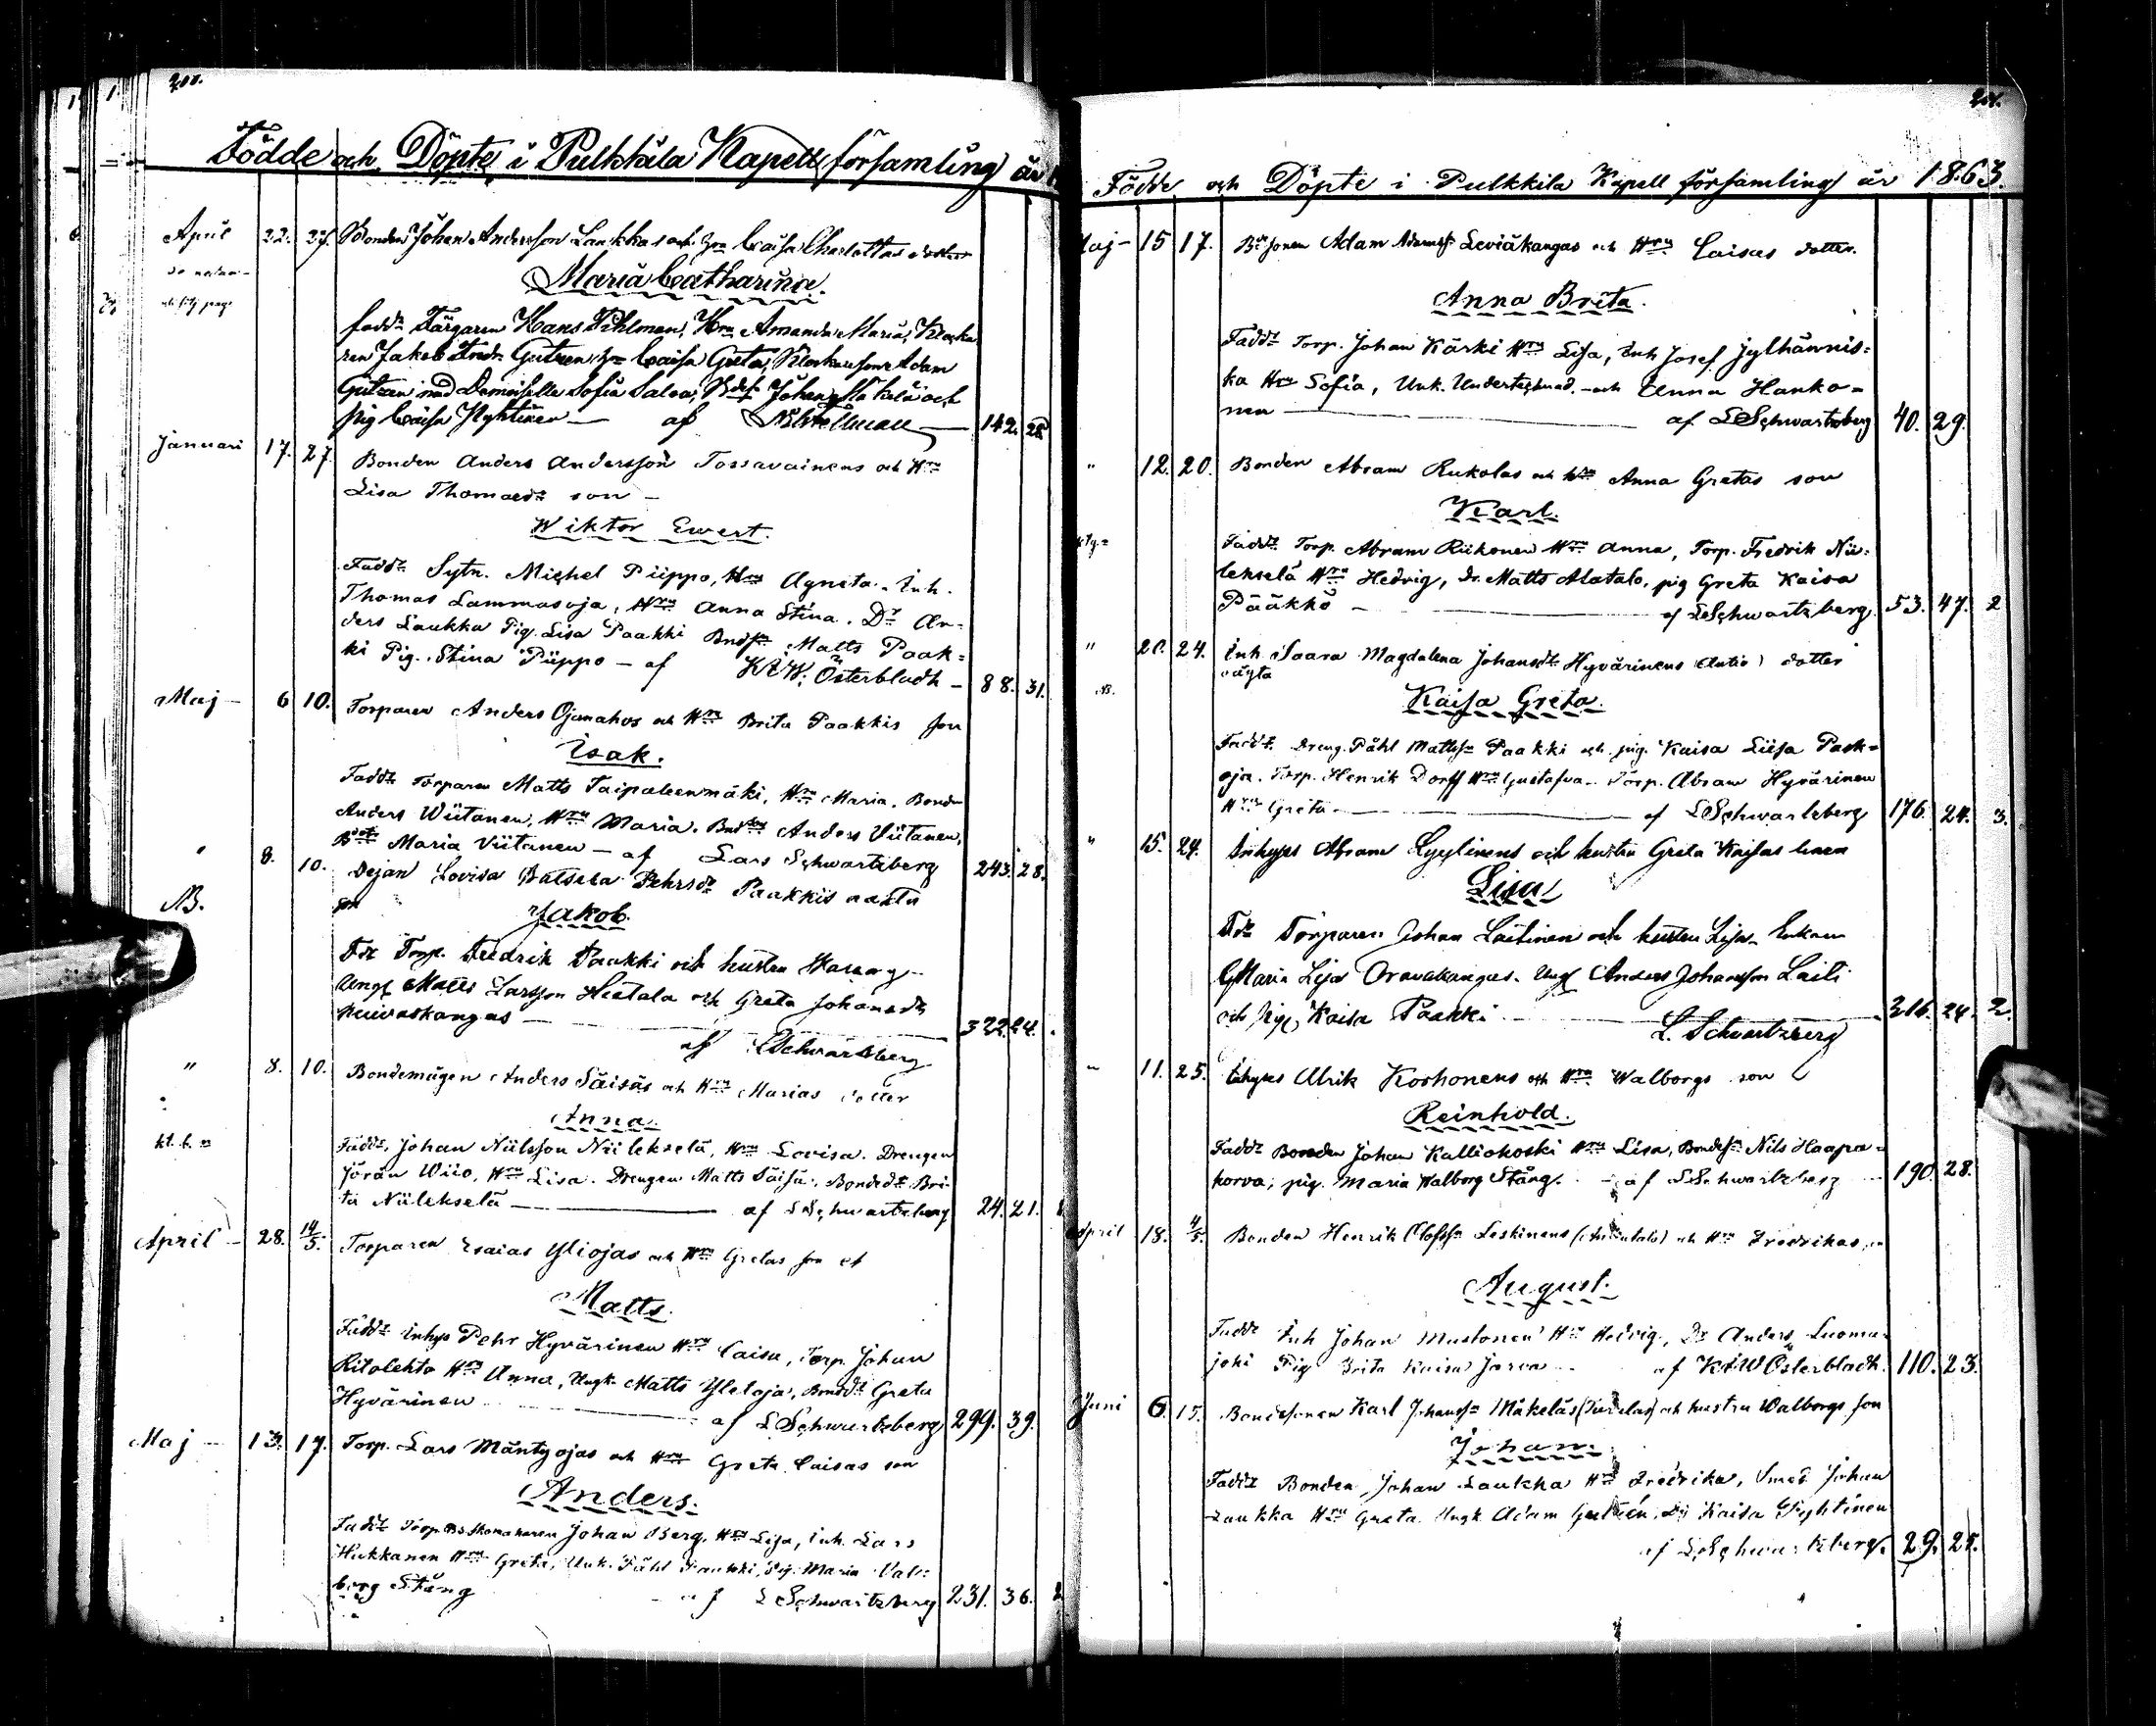 200.
Födde och Döpte i Pulkkila Kapell församling år
April 22. 27. Bonden Johan Andersson Laukkas och Hru Caisa Charlottas dotter
Maria Catharina.
fadd. Färgaren Hans Pihlman, Hru Amanda Maria, Klocka
ren Jakob Fredr. Gutzen, Hru Caisa Greta, Klockaresonen Adam
Gutzen med Demoiselle Sofia Salva, Johan och
pig Caisa Hyttinen — af 142. 28
Januari 17. 27. Bonden Anders Andersson Tossavainens och Hru
Lisa Thomaedr son —
Wiktor Ewert.
Fadd. Sytn. Michel Piippo, Hru Agneta. Inh.
Thomas Lammasoja, Hru Anna Stina. Dr An-
ders Laukka Pig. Lisa Paakki Bndsn Matts Paak-
ki Pig. Stina Piippo — af K. W. Österbladh — 88. 31.
Maj — 6 10. Torparen Anders Ojanahos och Hru Brita Paakkis son
Isak.
Fadd. Torparen Matts Taipaleenmäki, Hru Maria. Bonden
Anders Wiitanen, Hru Maria. Anders Viitanen,
Maria Viitanen — af Lars Schwartzberg 243. 28.
" 8. 10. Pejan Lovisa Pehrsdr Paakkis oäkta
NB. son
Jakob.
Fdr Torp. Fredrik Paakki och hustru
Ungk Matts Larsson Hietala och Greta Johansdr
Kuivaskangas — 322. 24.
af LSchwartzberg
" 8. 10. Bondemågen Anders Säisäs och Hru Marias dotter
Anna.
Fadd. Johan Niilsson Niilekselä, Hru Lovisa. Drengen
Jöran Wiio, Hru Lisa. Drengen Matts Säisä, Bondedr Bri-
ta Niilekselä — af LSchwartzberg 24. 21.
April — 28. 14/5. Torparen Esaias Yliojas och Hru Gretas son
Matts.
Fadd. Inhys Pehr Hyvärinen Hru Caisa, Torp. Johan
Ritolehto Hru Anna, Ungk. Matts Yleloja, Bonddr Greta
Hyvärinen — af LSchwartzberg 299. 39.
Maj — 13. 17. Torp. Lars Mäntyojas och Hru Greta Caisas son
Anders.
Fadd. Torp. Skomakaren Johan Berg, Hru Lisa, inh. Lars
Hukkanen Hru Greta, Unk. Påhl Paakki, Pig. Maria Val-
borg Stång — af LSchwartzberg 231. 36.
201.
Födde och Döpte i Pulkkila Kapell församling år 1863.
Maj — 15 17. Bdsonen Adam Adamss. Leviäkangas och Hru Caisas dotter.
Anna Brita.
Fadd. Torp. Johan Kärki Hru Lisa, Inh Josef Jylhännis-
ka Hru Sofia, Unk. Undertecknad. och Anna Hanko-
nen — af LSchwartzberg 40. 29.
" 12. 20. Bonden Abram Rukolas och Hru Anna Gretas son
Karl.
Fadd. Torp. Abram Riikonen Hru Anna, Torp. Fredrik Nii-
lekselä Hru Hedvig, Dr. Matts Alatalo, pig Greta Kaisa
Pääkkö — af LSchwartzberg. 53. 47. 2
" 20. 24. Inh Saara Magdalena Johansdr Hyvärinens (Autio) dotter
NB. oägta
Kaisa Greta.
Fadd. Dreng. Påhl Mattss. Paakki och pig. Kaisa Liisa Pask-
oja. Torp. Henrik Dorff Hru Gustafva. Torp. Abram Hyvärinen
Hru Greta — af LSchwartzberg 176. 24. 3.
" 15. 24. Inhyses Abram Lyytinens och hustru Greta Kaisas
Lisa
Fdr Torparen Johan Laitinen och hustru Lisa. Enkan
Maria Lisa Oravakangas. Ungk Anders Johansson Laiti
och Pig. Kaisa Paakki — 316. 24. 2.
L. Schwartzberg
" 11. 25. Inhyses Ulrik Korhonens och Hru Walborgs son
Reinhold.
Fadd. Bonden Johan Kalliokoski Hru Lisa, Bondess. Nils Haapa-
korva, pig. Maria Walborg Stång. — af LSchwartzberg 190. 28.
April 18. 4/5. Bonden Henrik Olofss. Leskinens och Hru Fredrikas
August.
Fadd. Inh Johan Mustonen Hru Hedvig, Dr Anders Luoma-
joki Pig Brita Kaisa — af K W Österbladh. 110. 23.
Juni 6. 15. Bondesonen Karl Johanss. Mäkeläs och hustru Walborgs son
Johan.
Fadd. Bonden Johan Laukka Hru Fredrika, Smed Johan
Laukka Hru Greta. Ungk Adam Gutzén, Kaisa
af LSchwartzberg. 29. 25.